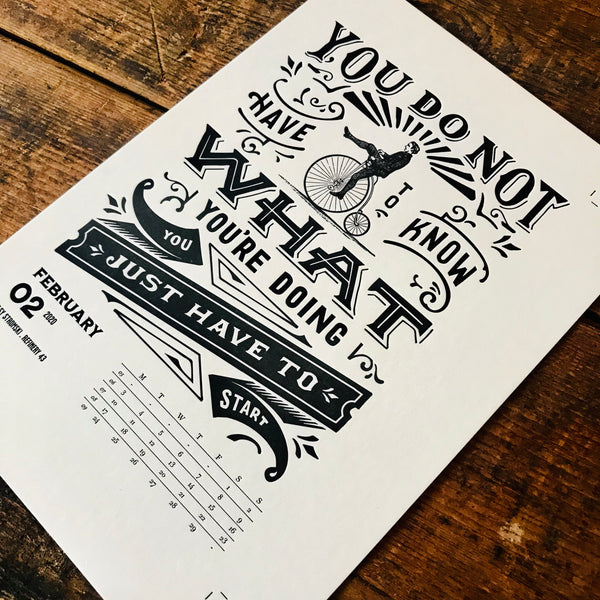 YOU DO NOT
HAVE TO KNOW
WHAT
YOU'RE DOING
YOU
JUST HAVE TO
START
FEBRUARY
02 2020
REFINERY 43
M T W T F S S
05 . . . . . 1 2
06 3 4 5 6 7 8 9
07 10 11 12 13 14 15 16
08 17 18 19 20 21 22 23
09 24 25 26 27 28 29 .